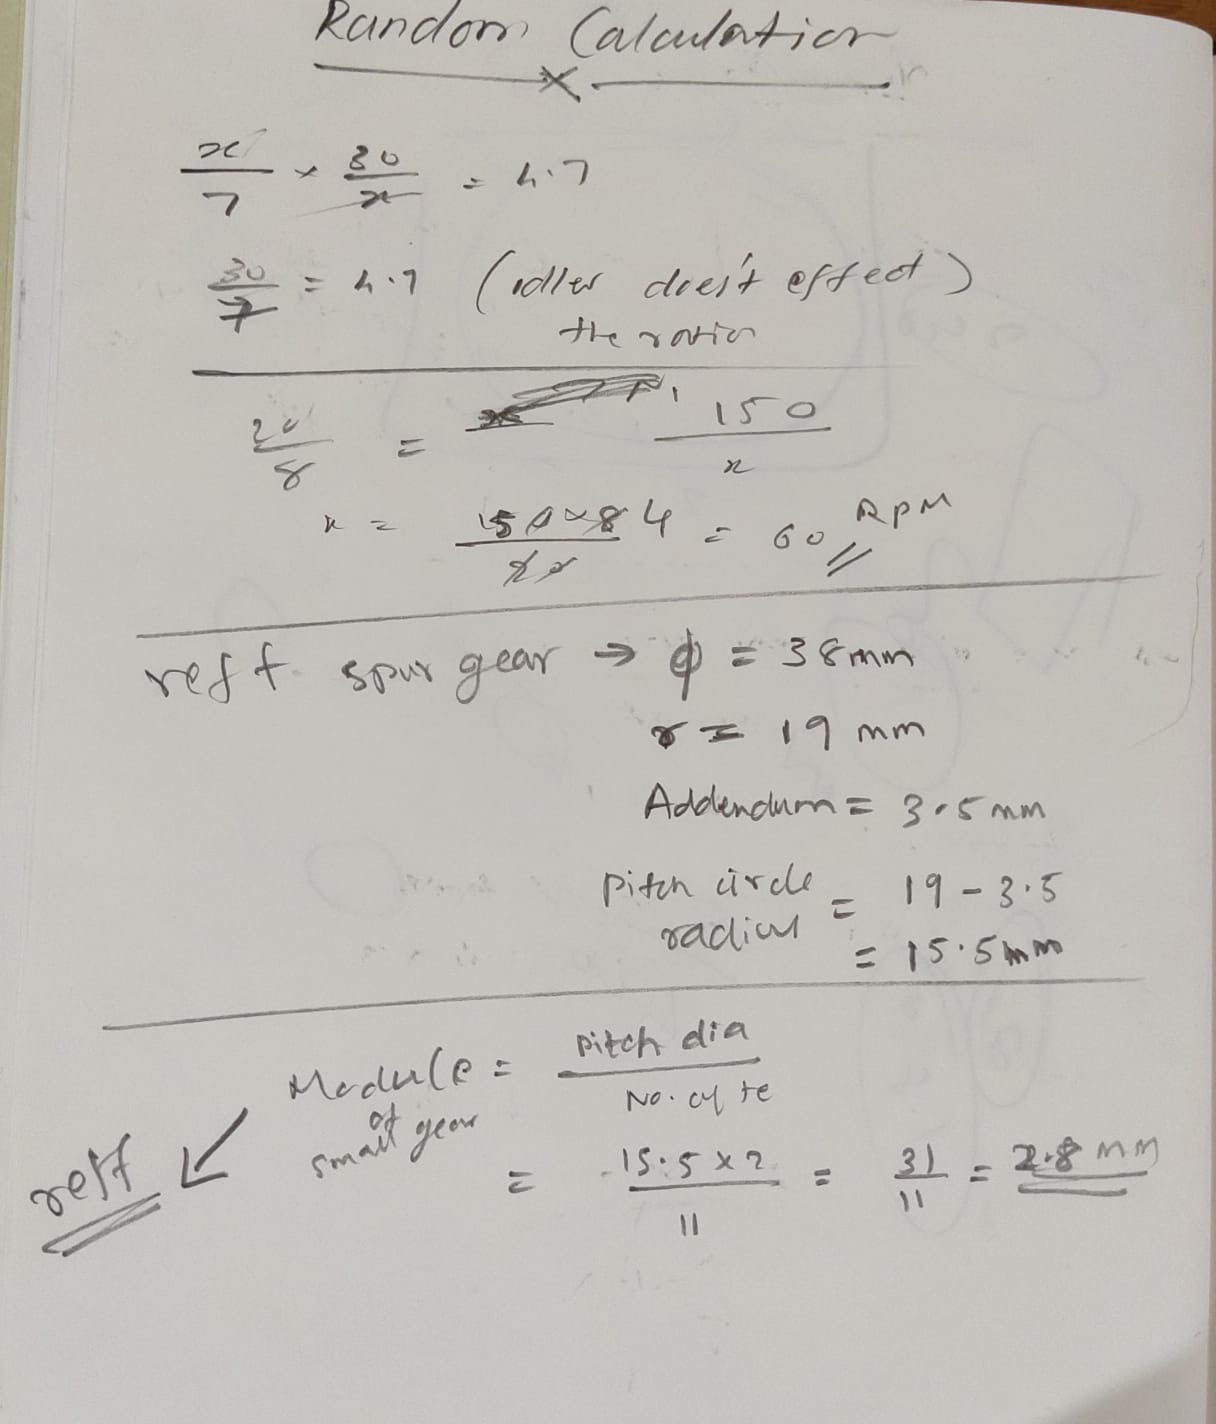 Random Calculation
x/7 × 30/x = 4.7
30/7 = 4.7 (idler does't effect)
the ratio
20/8 = 150/x
x = 150×8 4/20 = 60 RPM
reff spur gear → ϕ = 38mm
r = 19 mm
Addendum = 3.5 mm
Pitch circle radius = 19 - 3.5
= 15.5mm
Module of small gear = Pitch dia / No. of te
reff ↙
= 15.5 x 2 / 11 = 31/11 = 2.8 mm